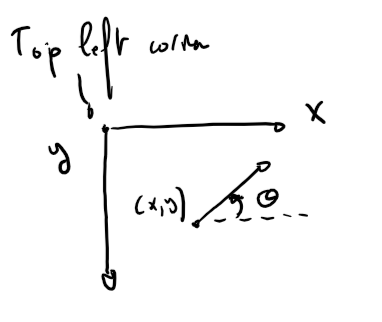 Top left corner
x
y
(x,y) θ